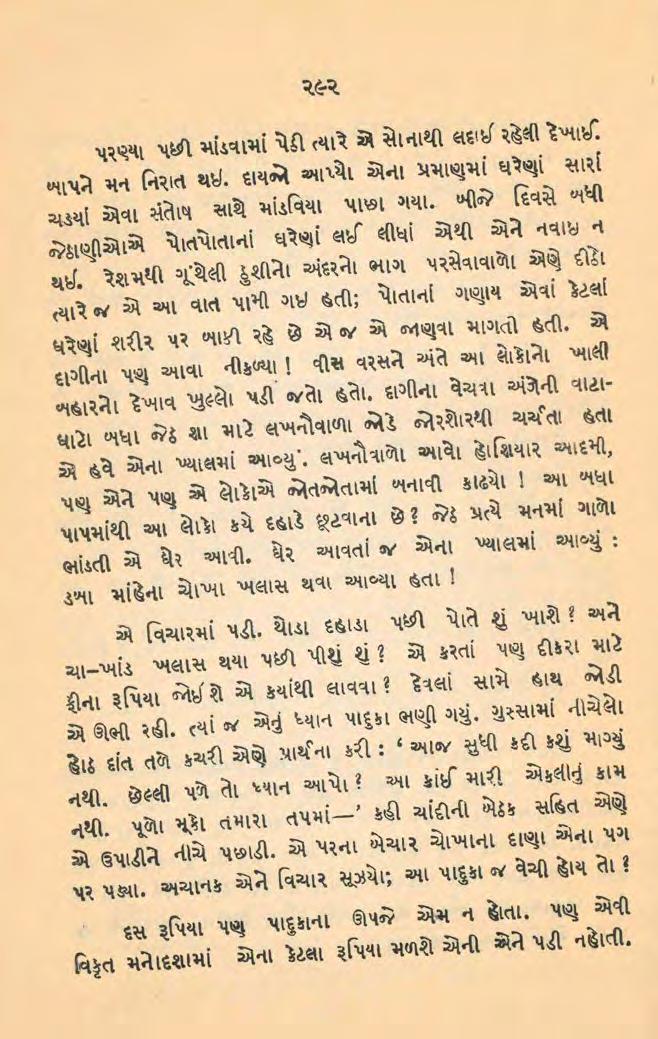 ૨૯૨
પરણ્યા પછી માંડવામાં પેઠી ત્યારે એ સોનાથી લદાઈ રહેલી દેખાઈ.
બાપને મન નિરાત થઈ. દાયજો આપ્યો એના પ્રમાણમાં ઘરેણાં સારાં
ચડયાં એવા સંતોષ સાથે માંડવિયા પાછા ગયા. બીજે દિવસે બધી
જેઠાણીઓએ પોતપોતાનાં ઘરેણાં લઈ લીધાં એથી એને નવાઈ ન
થઈ. રેશમથી ગૂંથેલી હુશીનો અંદરનો ભાગ પરસેવાવાળો એણે દીઠો
ત્યારે જ એ આ વાત પામી ગઈ હતી; પોતાનાં ગણાય એવાં કેટલાં
ઘરેણાં શરીર પર બાકી રહે છે એ જ એ જાણવા માગતી હતી. એ
દાગીના પણ આવા નીકળ્યા ! વીસ વરસને અંતે આ લોકોનો ખાલી
બહારનો દેખાવ ખુલ્લો પડી જતો હતો. દાગીના વેચવા અંગેની વાટા-
ઘાટો બધા જેઠ શા માટે લખનૌવાળા જોડે જોરશોરથી ચર્ચતા હતા
એ હવે એના ખ્યાલમાં આવ્યું. લખનૌવાળો આવો હોશિયાર આદમી,
પણ એને પણ એ લોકોએ જોતજોતામાં બનાવી કાઢયો ! આ બધા
પાપમાંથી આ લોકો કયે દહાડે છૂટવાના છે ? જેઠ પ્રત્યે મનમાં ગાળો
ભાંડતી એ ઘેર આવી. ઘેર આવતાં જ એના ખ્યાલમાં આવ્યું :
ડબા માંહેના ચોખા ખલાસ થવા આવ્યા હતા !
એ વિચારમાં પડી. થોડા દહાડા પછી પોતે શું ખાશે ? અને
ચા–ખાંડ ખલાસ થયા પછી પીશું શું ? એ કરતાં પણ દીકરા માટે
ફીના રૂપિયા જોઈશે એ કયાંથી લાવવા ? દેવલાં સામે હાથ જોડી
એ ઊભી રહી. ત્યાં જ એનું ધ્યાન પાદુકા ભણી ગયું. ગુસ્સામાં નીચેલો
હોઠ દાંત તળે કચરી એણે પ્રાર્થના કરી : ‘ આજ સુધી કદી કશું માગ્યું
નથી. છેલ્લી પળે તો ધ્યાન આપો ? આ કાંઈ મારી એકલીનું કામ
નથી. પૂળો મૂકો તમારા તપમાં—’ કહી ચાંદીની બેઠક સહિત એણે
એ ઉપાડીને નીચે પછાડી. એ પરના બેચાર ચોખાના દાણા એના પગ
પર પડ્યા. અચાનક એને વિચાર સૂઝયો; આ પાદુકા જ વેચી હોય તો ?
દસ રૂપિયા પણ પાદુકાના ઊપજે એમ ન હોતા. પણ એવી
વિકૃત મનોદશામાં એના કેટલા રૂપિયા મળશે એની એને પડી નહોતી.